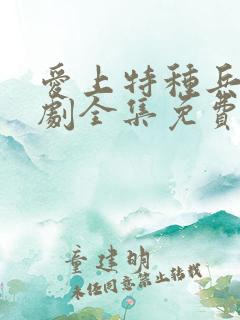 愛上特種兵
劇全集免費
童建明
未經同意禁止轉載